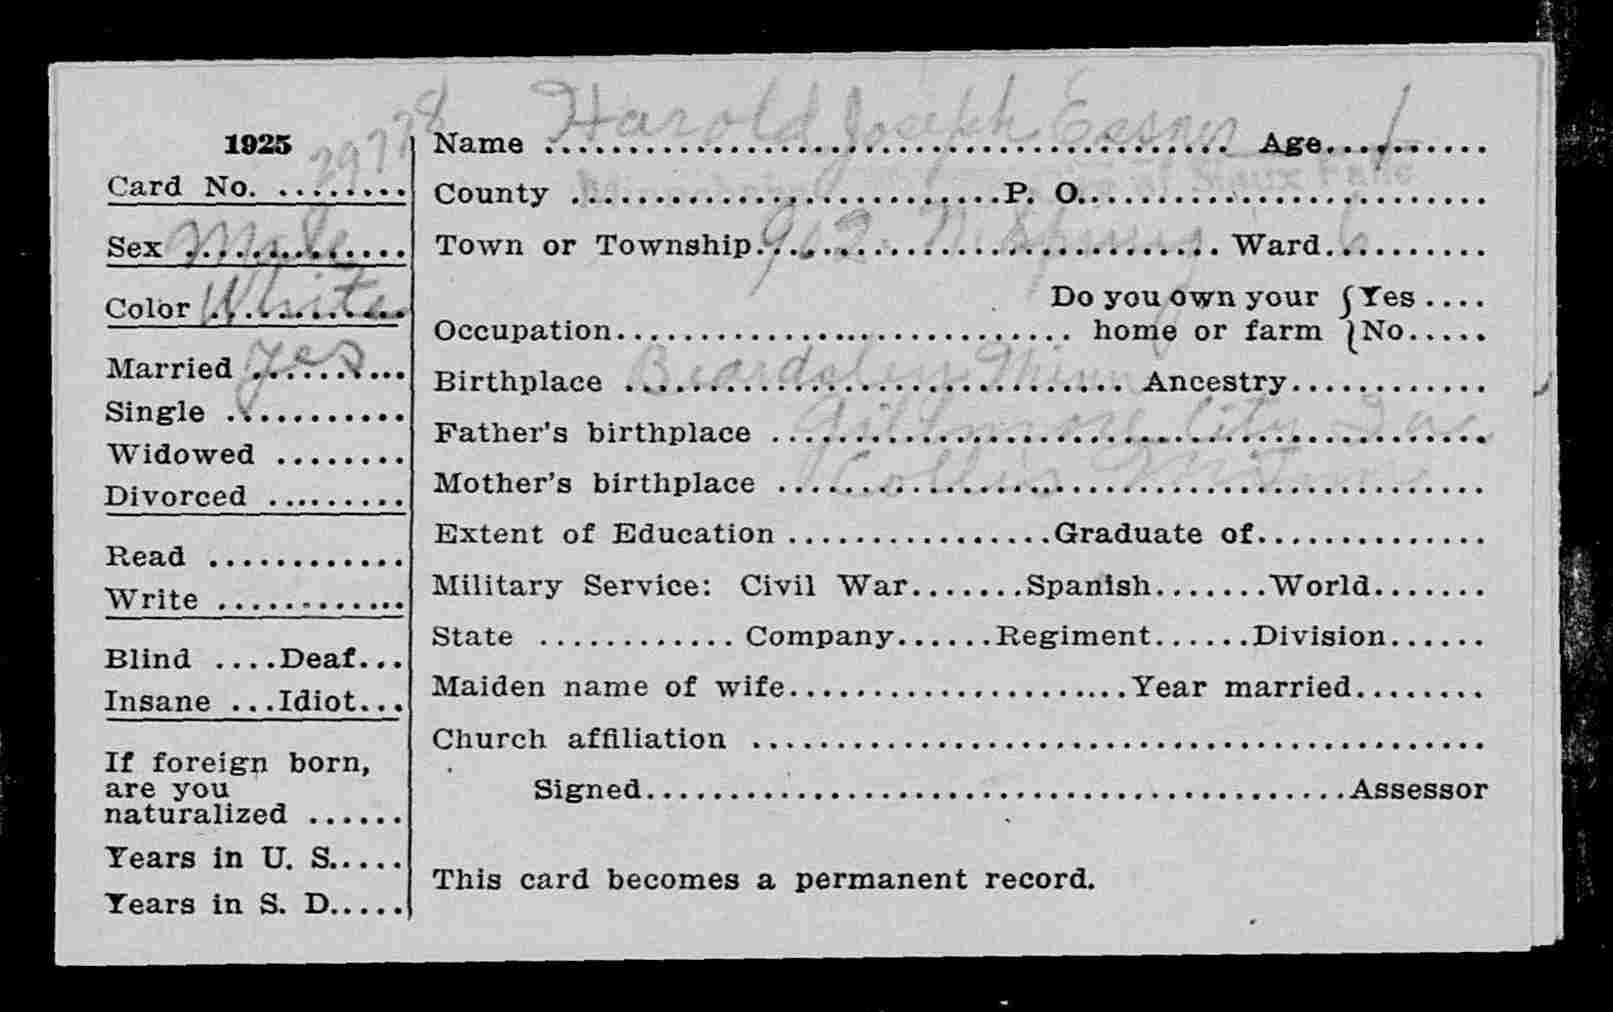 1925
Card No. ........ 29778
Sex Male
Color White
Married yes
Single ...........
Widowed ........
Divorced .........
Read ............
Write ............
Blind ....Deaf...
Insane ...Idiot...
If foreign born,
are you
naturalized ......
Years in U. S.....
Years in S. D.....
Name Harold Joseph Age 1
County Minnehaha P. O. of Sioux Falls
Town or Township 902 N. Spring Ward 6
Do you own your { Yes ....
Occupation ............................ home or farm { No.....
Birthplace Beardsley Minn Ancestry............
Father's birthplace Gillmore City Ioa
Mother's birthplace
Extent of Education ................Graduate of..............
Military Service: Civil War.......Spanish.......World.......
State ............ Company......Regiment......Division......
Maiden name of wife.....................Year married........
Church affiliation ............................................
Signed..........................................Assessor
This card becomes a permanent record.